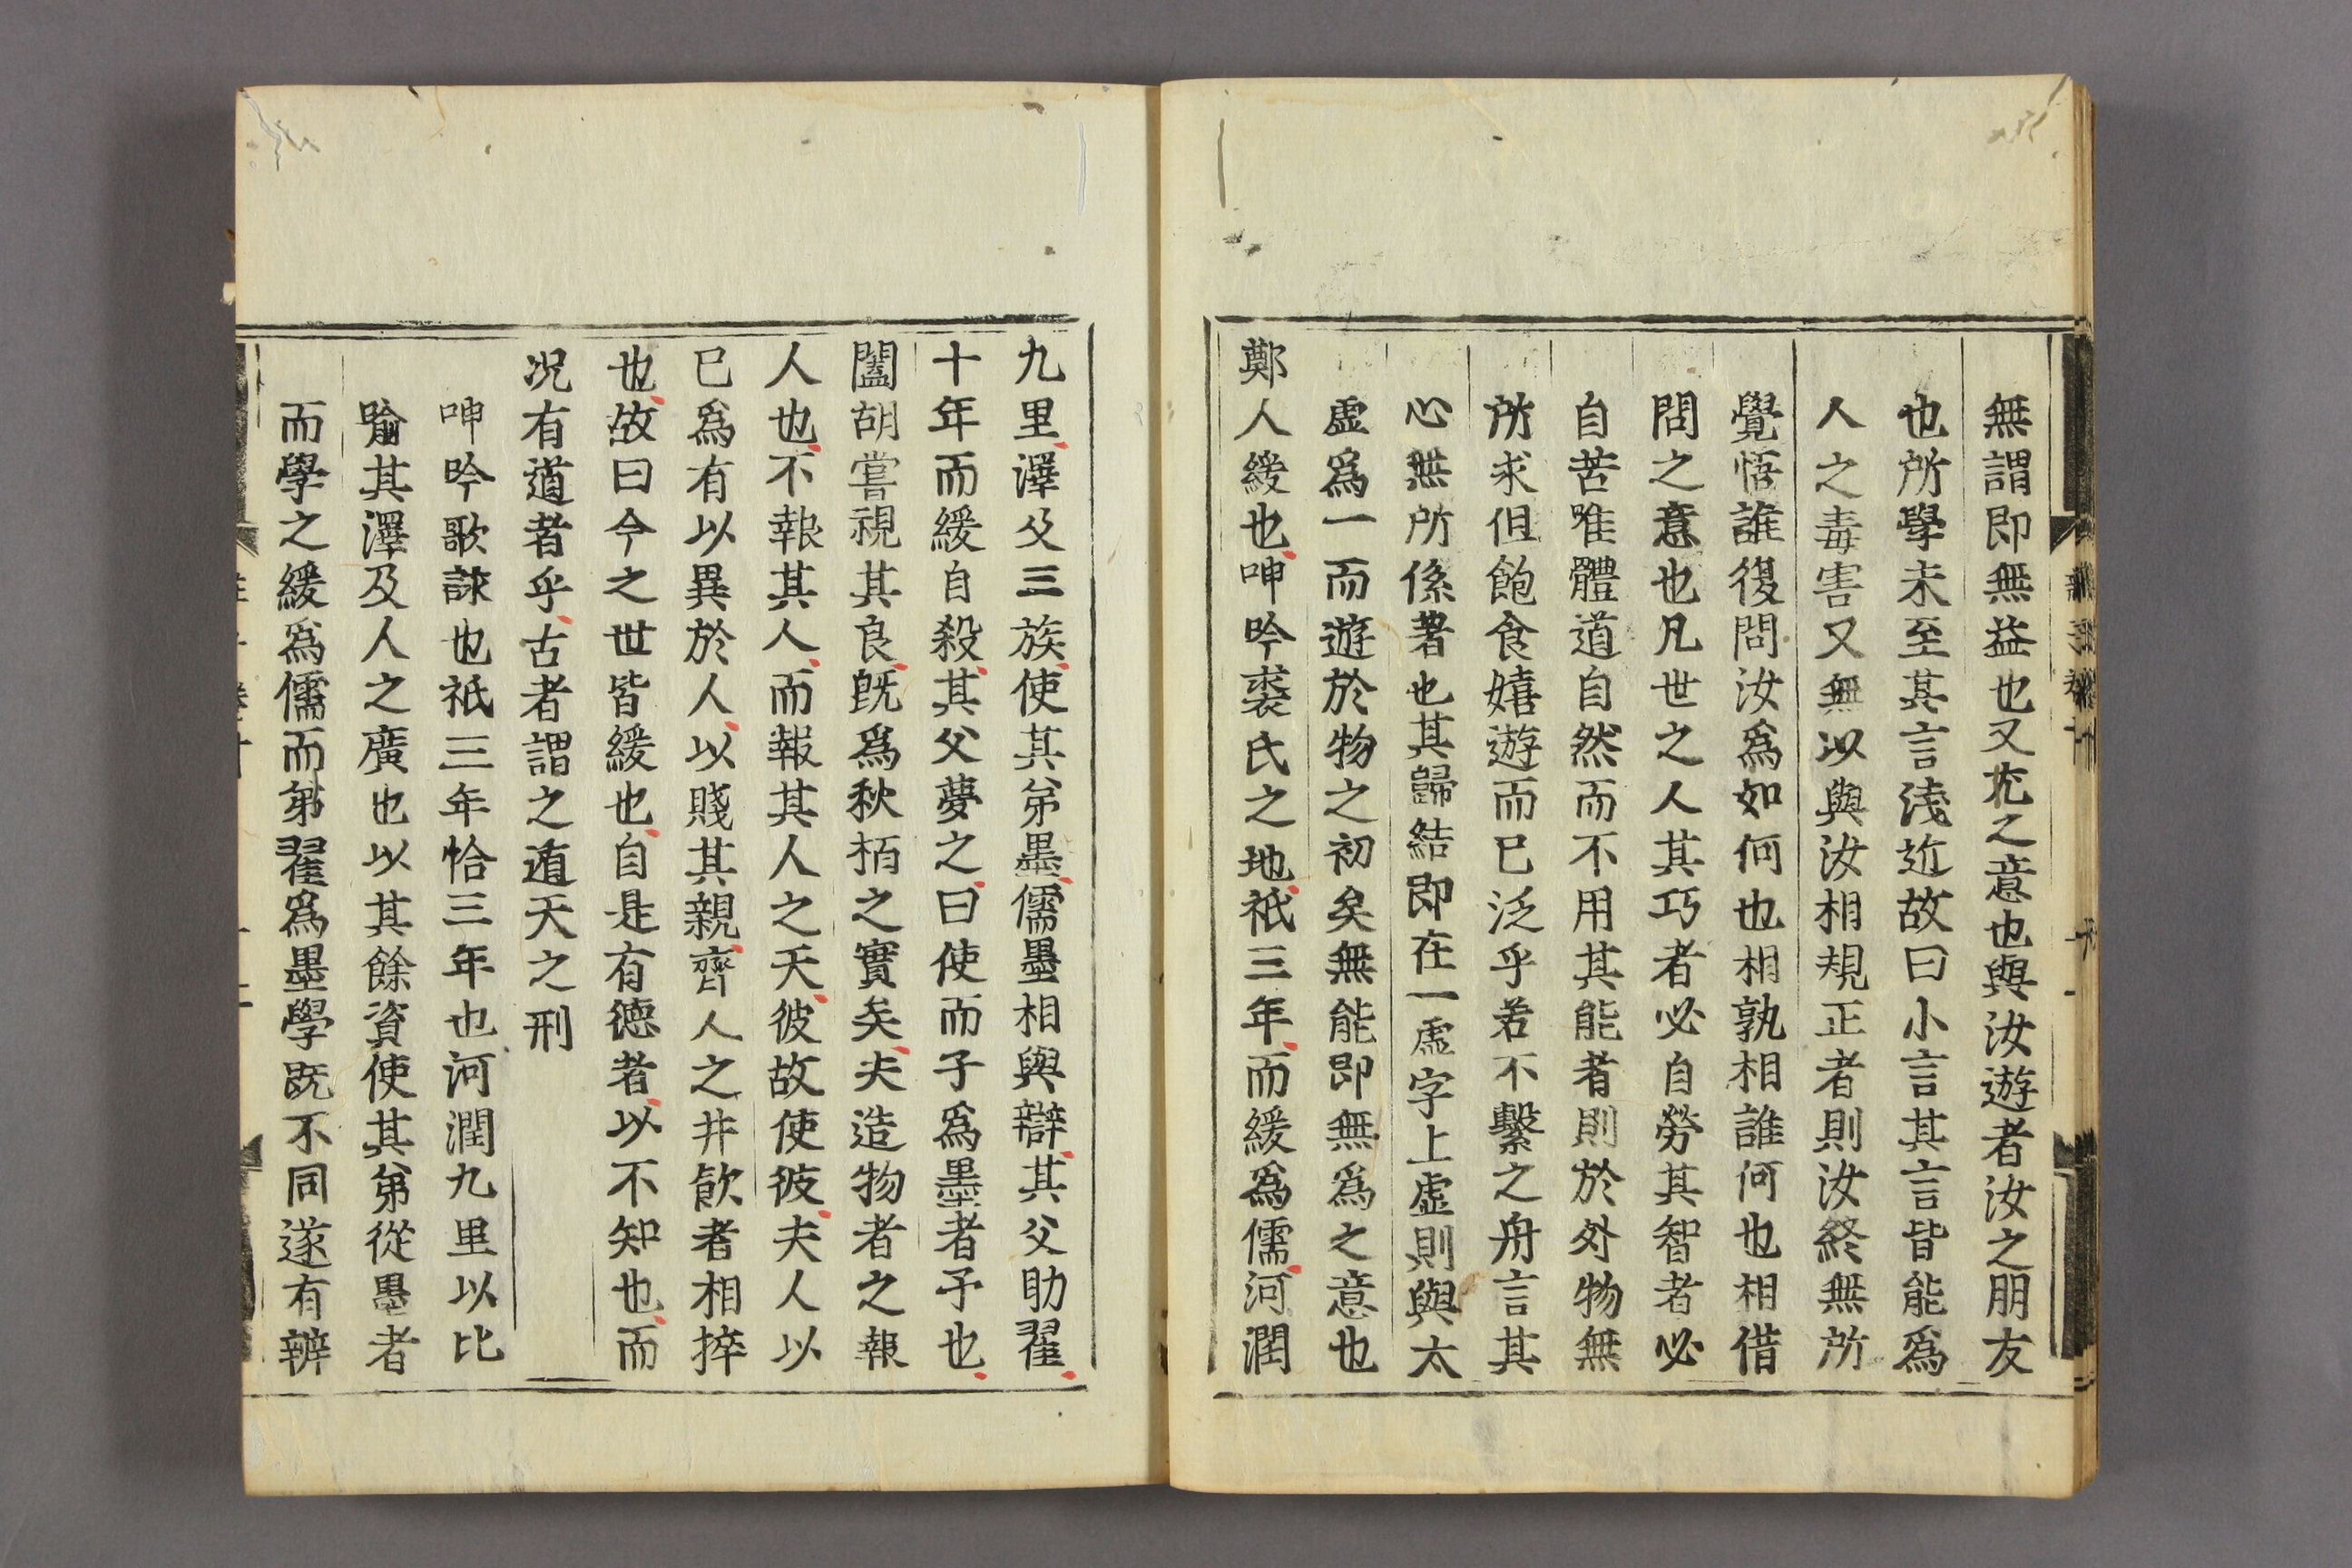 無謂即無益也又尤之意也與汝遊者汝之朋友
也所學未至其言淺近故曰小言其言皆能爲
人之毒害又無以與汝相規正者則汝終無所
覺悟誰復問汝爲如何也相孰相誰何也相借
問之意也凡世之人其巧者必自勞其智者必
自苦唯體道自然而不用其能者則於外物無
所求但飽食嬉遊而已泛乎若不繫之舟言其
心無所係著也其歸結即在一虛字上虛則與太
虛爲一而遊於物之初矣無能即無爲之意也
鄭人緩也呻吟裘氏之地祇三年而緩爲儒河潤
九里澤及三族使其弟墨儒墨相與辯其父助翟
十年而緩自殺其父夢之曰使而子爲墨者予也
闔胡嘗視其良旣爲秋栢之實矣夫造物者之報
人也不報其人而報其人之天彼故使彼夫人以
巳爲有以異於人以賤其親齊人之井飮者相捽
也故曰今之世皆緩也自是有德者以不知也而
況有道者乎古者謂之遁天之刑
呻吟歌詠也祇三年恰三年也河潤九里以比
喻其澤及人之廣也以其餘資使其弟從墨者
而學之緩爲儒而弟翟爲墨學旣不同遂有辨